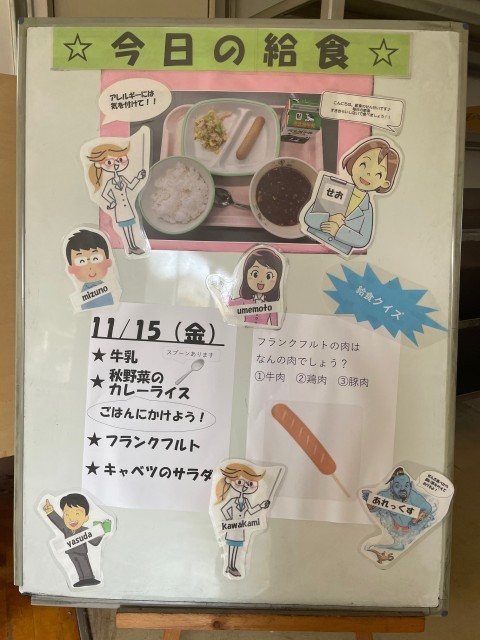 ☆今日の給食☆
アレルギーには
気を付けて！！
せお
mizuno
umemoto
給食クイズ
11/15（金）
★牛乳
スプーンあります
★秋野菜の
カレーライス
ごはんにかけよう！
★フランクフルト
★キャベツのサラダ
フランクフルトの肉は
なんの肉でしょう？
①牛肉　②鶏肉　③豚肉
yasuda
kawakami
あれっくす